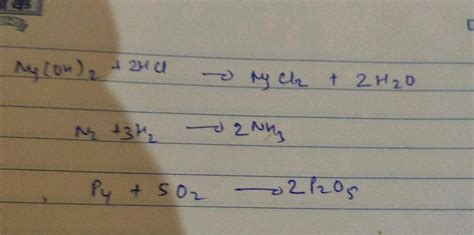 Mg(OH)2 + 2HCl → MgCl2 + 2H2O
N2 + 3H2 → 2NH3
P4 + 5O2 → 2P2O5